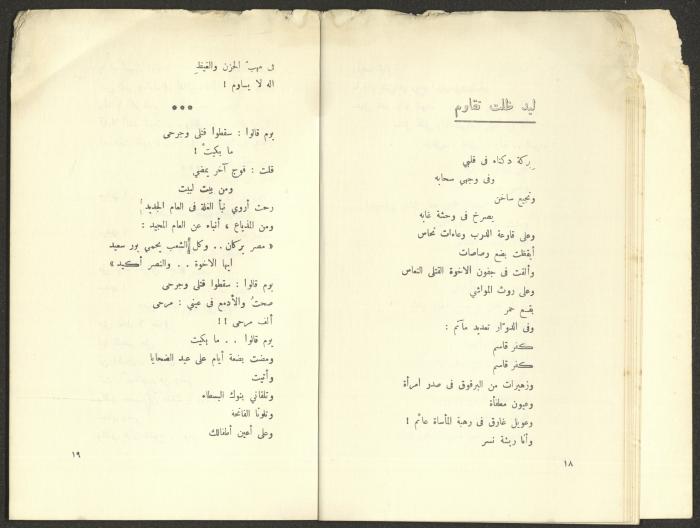 ليد ظلت تقاوم
بركة دكناء فى قلبي
وفى وجهي سحابه
ونجيع ساخن
يصرخ فى وحشة غابه
وعلى قارعة الدرب وعاءات نحاس
أيقظت بضع رصاصات
وألقت فى جفون الاخوة القتلى النعاس
وعلى روث المواشي
بقع حمر
وفى الدوّار تعديد مآتم :
كفر قاسم
كفر قاسم
وزهيرات من البرقوق فى صدر امرأة
وعيون مطفأة
وعويل غارق فى رهبة المأساة عائم !
وأنا ريشة نسر
١٨
ى مهبّ الحزن والغيظِ
اله لا يساوم !
•••
يوم قالوا : سقطوا قتلى وجرحى
ما بكيتْ !
قلت : فوج آخر يمضي
ومن بيت لبيت
رحت أروي نبأ الغلة فى العام الجديد !
ومن المذياع ، أنباء عن العام المجيد :
« مصر بركان . . وكل الشعب يحمي بور سعيد
أيها الاخوة . . والنصر أكيد »
يوم قالوا : سقطوا قتلى وجرحى
صحتُ والأدمع فى عيني : مرحى
ألف مرحى ! !
يوم قالوا . . ما بكيت
ومضت بضعة أيام على عيد الضحايا
وأتيت
وتلقاني بنوك البسطاء
وتلونا الفاتحة
وعلى أعين أطفالك
١٩